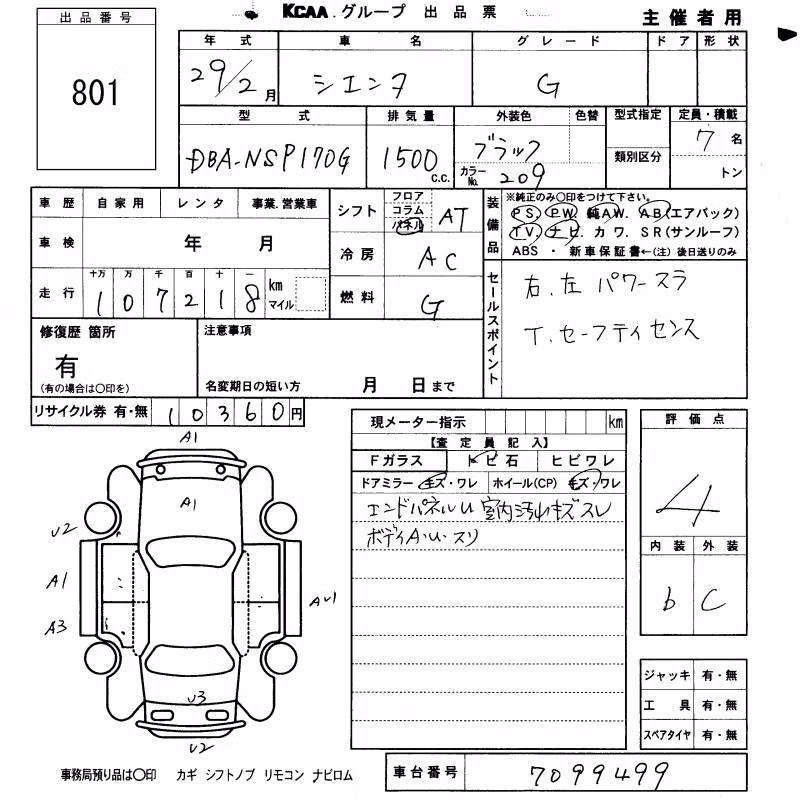 KCAA.グループ 出品票
主催者用
出品番号
801
年式 車名 グレード ドア 形状
29/2月 シエンタ G
型式 排気量 外装色 色替 型式指定 定員・積載
DBA-NSP170G 1500 c.c. ブラック 7名
カラーNo. 209 類別区分 トン
車歴 自家用 レンタ 事業.営業車
車検 年 月
走行 十万 万 千 百 十 一 km マイル
1 0 7 2 1 8
シフト フロア コラム パネル AT
冷房 AC
燃料 G
装備品
※純正のみ○印をつけて下さい。
PS. PW. 純AW. AB(エアバック)
TV. ナビ. カワ. SR(サンルーフ)
ABS ・ 新車保証書←(注) 後日送りのみ
セールスポイント
右.左 パワースラ
T.セーフティセンス
修復歴 箇所
有
(有の場合は○印を)
注意事項
名変期日の短い方 月 日まで
リサイクル券 有・無 10360円
現メーター指示 km
【査定員記入】
Fガラス トビ石 ヒビワレ
ドアミラー キズ・ワレ ホイール(CP) キズ・ワレ
エンドパネルU 室内汚れキズスレ
ボディA・U・スリ
評価点
4
内装 外装
b C
ジャッキ 有・無
工具 有・無
スペアタイヤ 有・無
A1
A1
U2
A1
A3
AU1
U3
U2
事務局預り品は○印 カギ シフトノブ リモコン ナビロム
車台番号 7099499